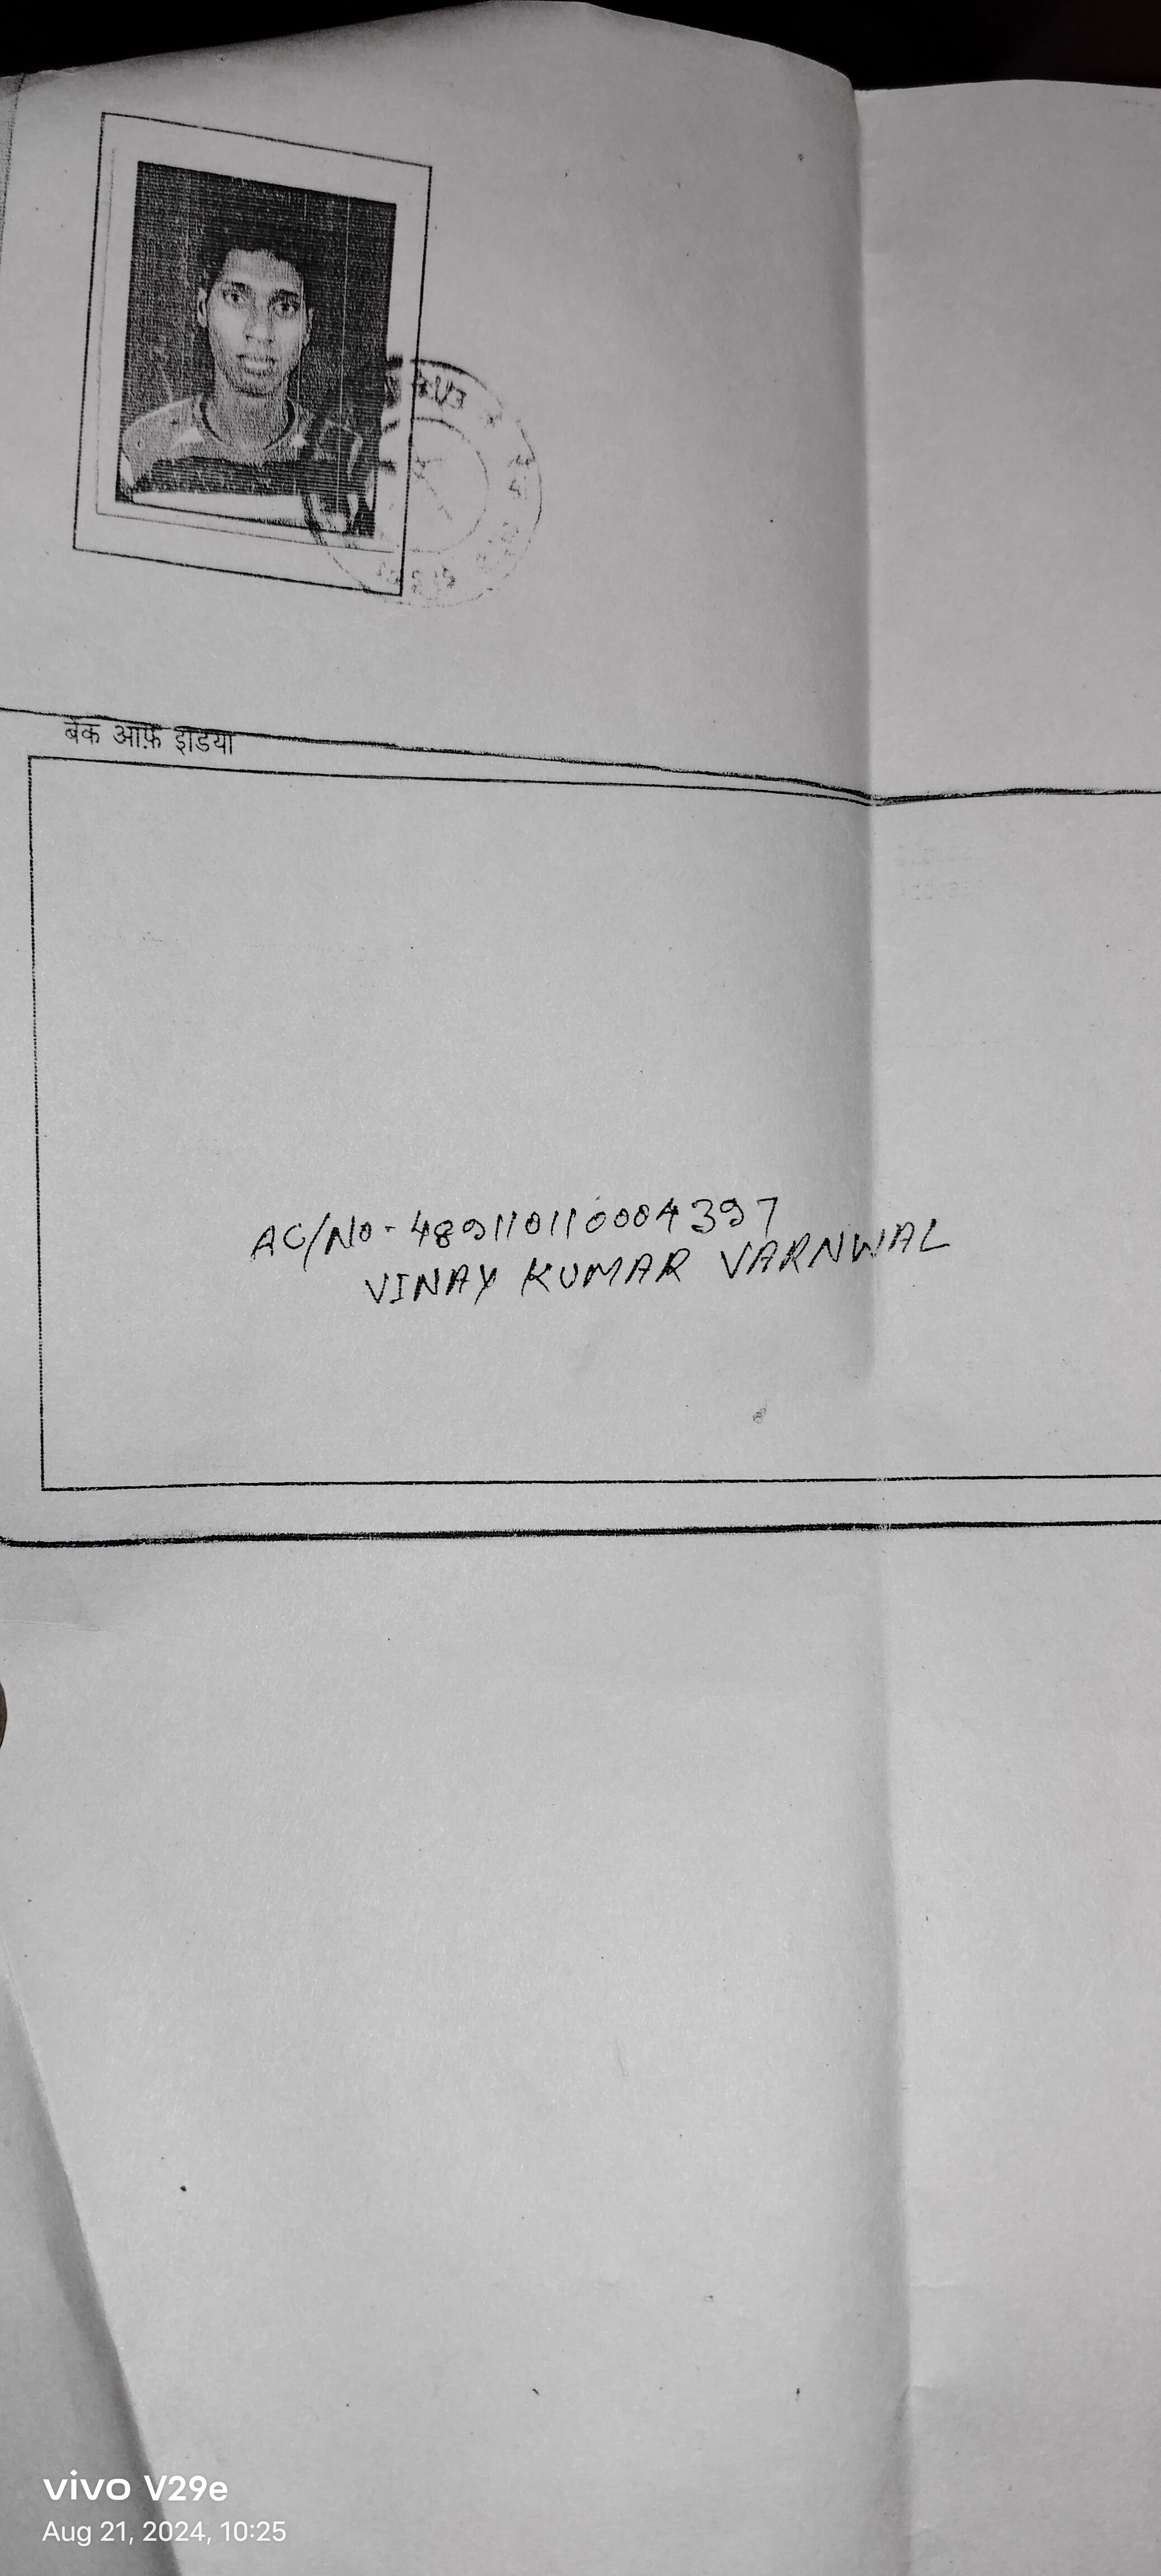 बैंक आफ़ इंडिया
AC/No-489110110004397
VINAY KUMAR VARNWAL
vivo V29e
Aug 21, 2024, 10:25